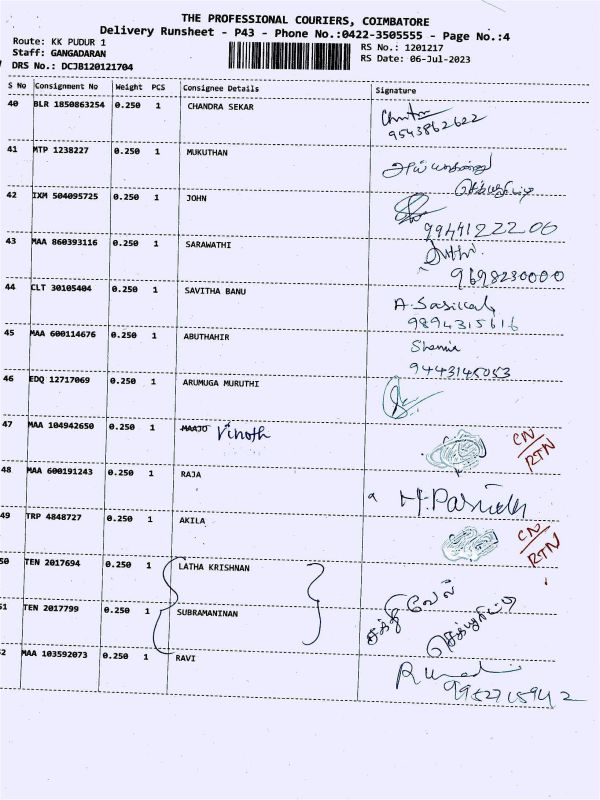 THE PROFESSIONAL COURIERS, COIMBATORE
Delivery Runsheet - P43 - Phone No.:0422-3505555 - Page No.:4
Route: KK PUDUR 1
RS No.: 1201217
Staff: GANGADARAN
RS Date: 06-Jul-2023
DRS No.: DCJB120121704
S No Consignment No Weight PCS Consignee Details Signature
40 BLR 1850863254 0.250 1 CHANDRA SEKAR
9543862622
41 MTP 1238227 0.250 1 MUKUTHAN
42 IXM 504095725 0.250 1 JOHN
9944122206
43 MAA 860393116 0.250 1 SARAWATHI
9698230000
44 CLT 30105404 0.250 1 SAVITHA BANU
A. Sasikala
9894315616
45 MAA 600114676 0.250 1 ABUTHAHIR
9443145053
46 EDQ 12717069 0.250 1 ARUMUGA MURUTHI
47 MAA 104942650 0.250 1 MAAJO Vinoth CN
RTN
48 MAA 600191243 0.250 1 RAJA
49 TRP 4848727 0.250 1 AKILA CN
RTN
50 TEN 2017694 0.250 1 LATHA KRISHNAN
51 TEN 2017799 0.250 1 SUBRAMANINAN
52 MAA 103592073 0.250 1 RAVI
9952715942